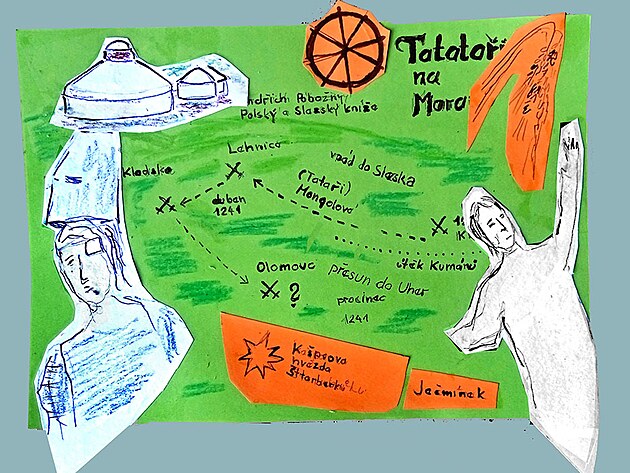 Tatataři
na
Mora
Jindřich Pobožný
Polský a Slezský kníže
Lehnice
vpád do Slezska
Kladsko
(Tataři)
Mongolové
duben
1241
útěk Kumánů
Olomouc
přesun do Uher
?
prosinec
1241
Kašprova
hvězda
Šternberků
Ječmínek